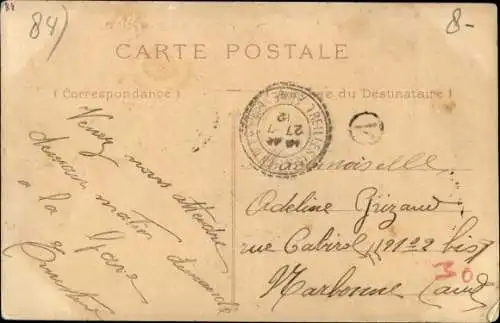 84
84)
8-
CARTE POSTALE
(Correspondance)
du Destinataire)
TREILLES
27-7
12
1
Venez nous attendre
demain matin dimanche
à la gare
Mademoiselle
Adeline Grizaud
rue Cabirol, 121 2 bis
30
Narbonne (Aude)